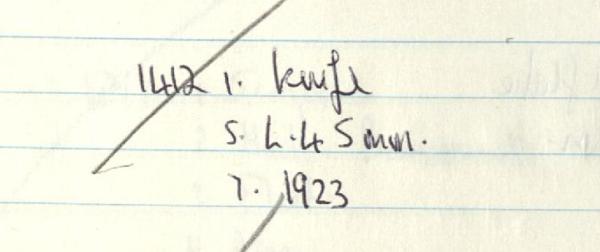 1412 1. Knife
5. L.45mm.
7. 1923